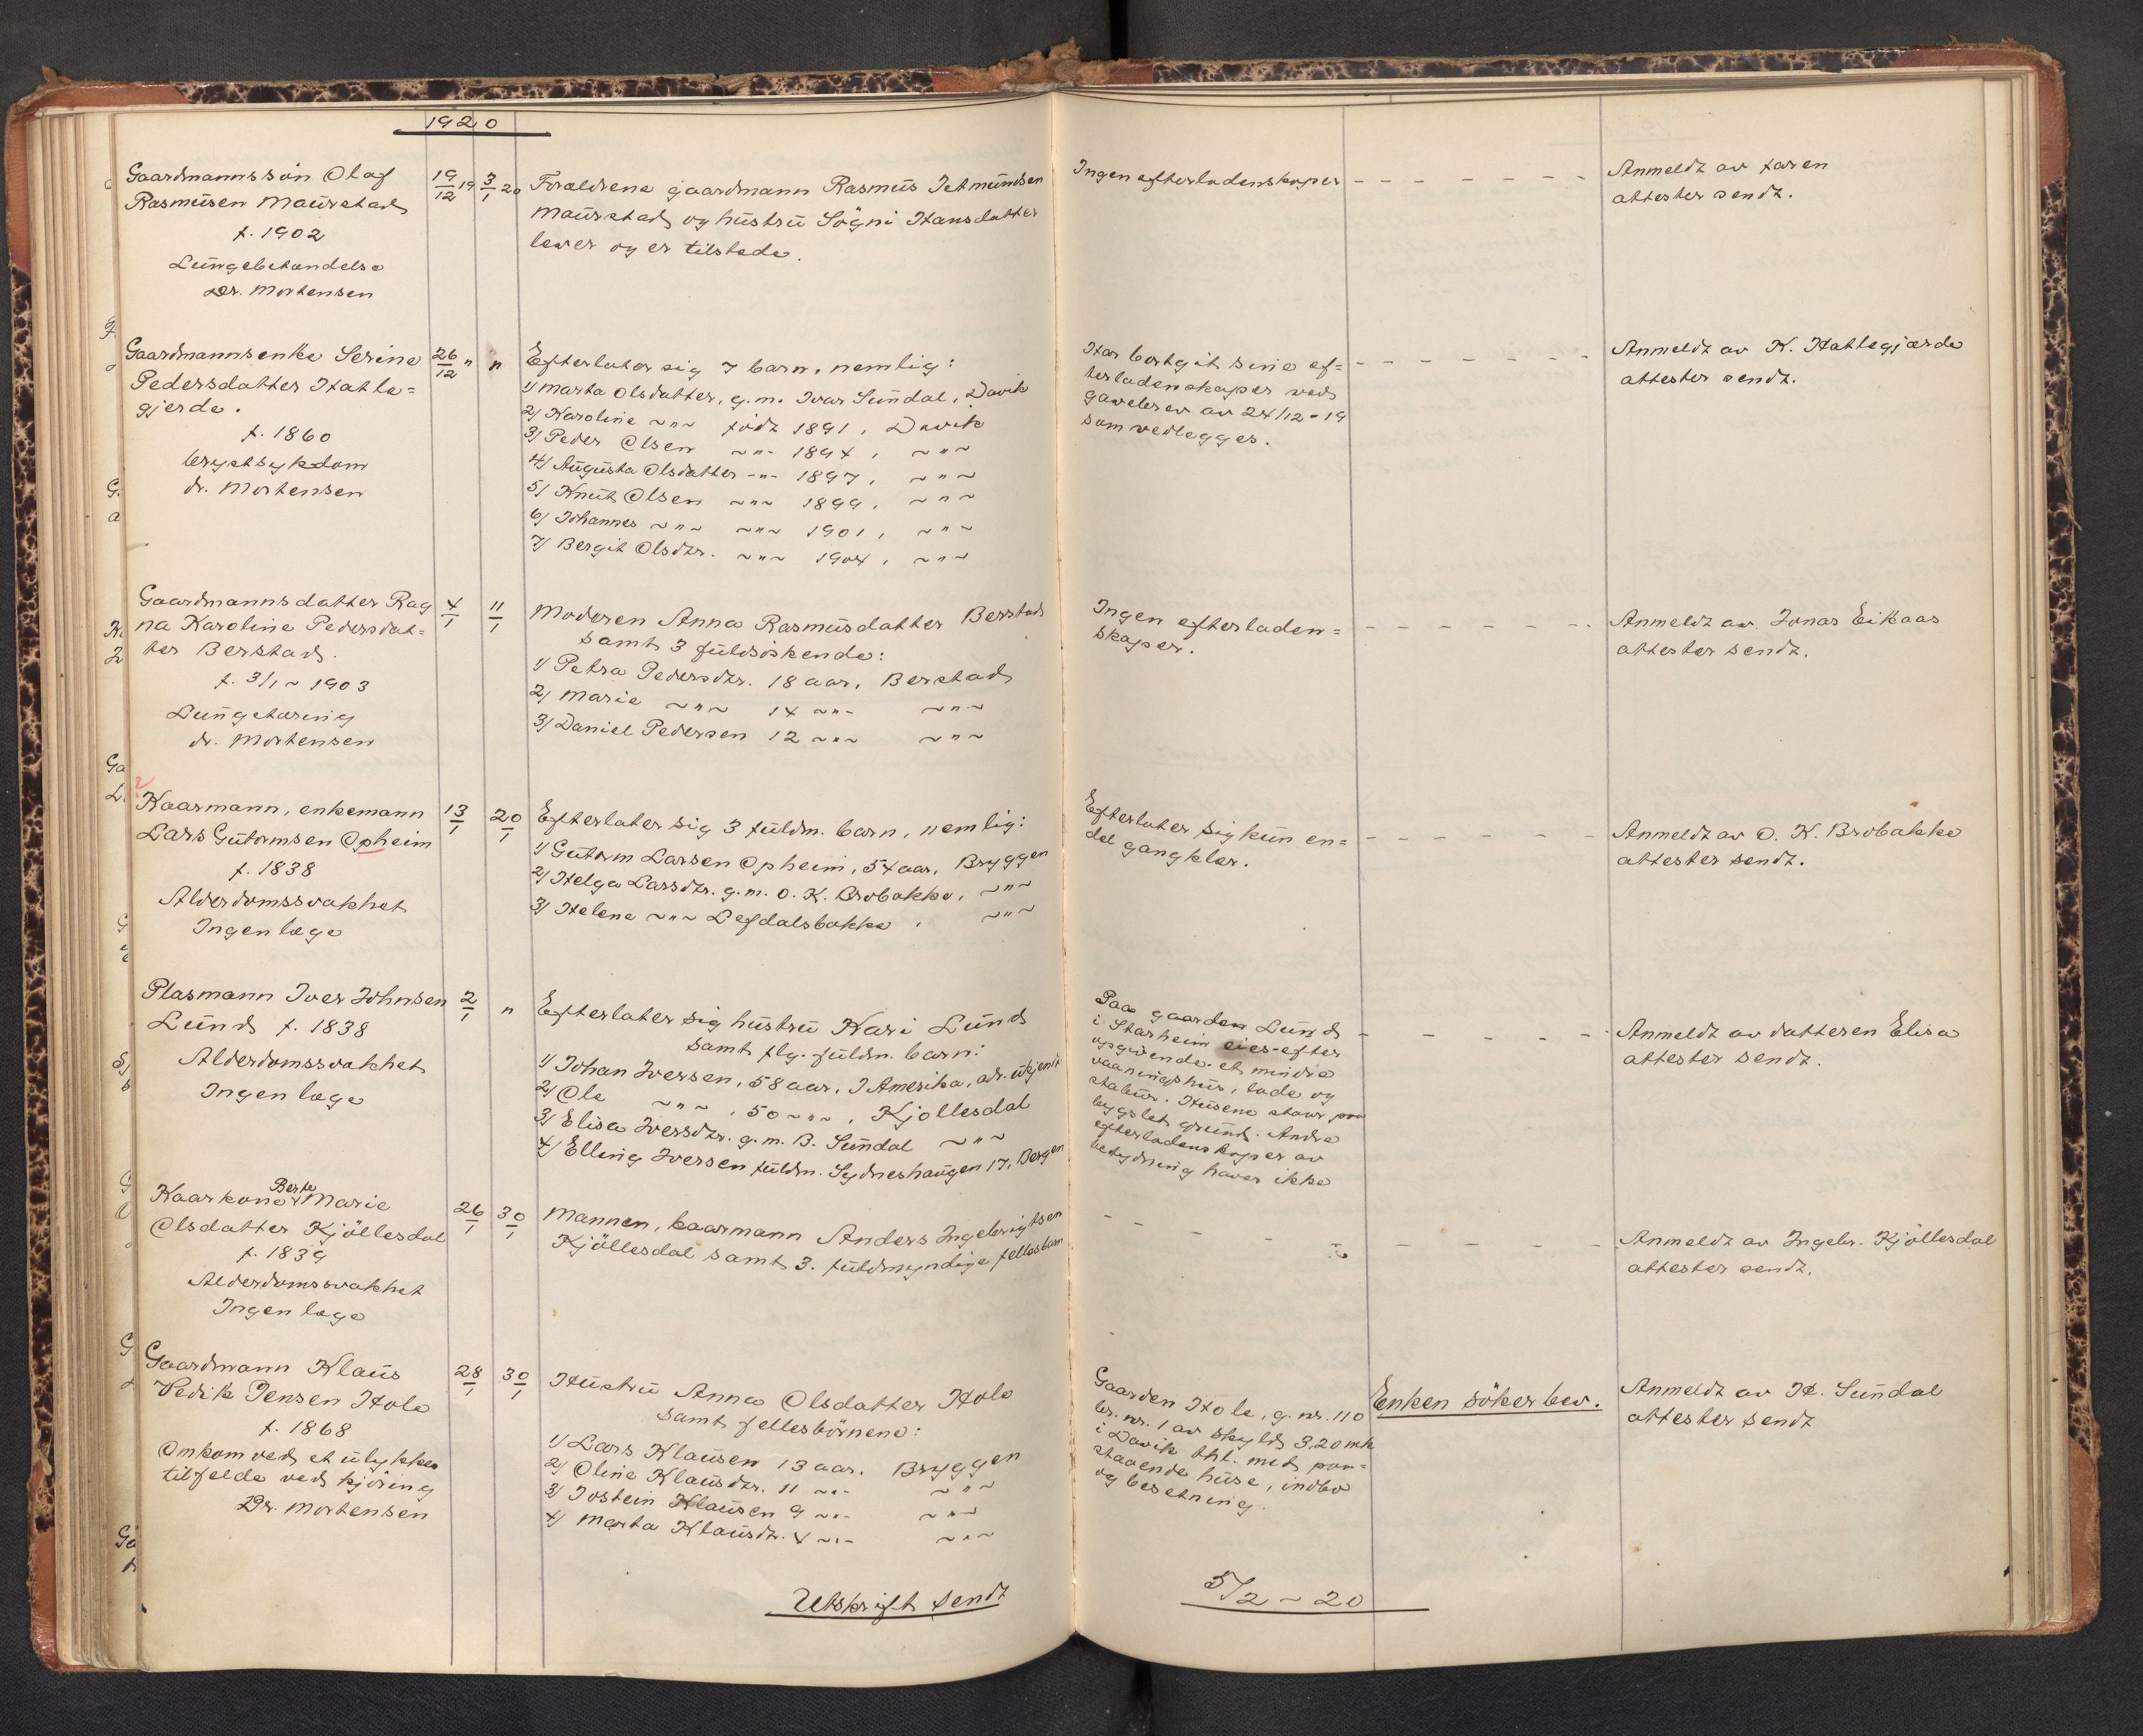 1920
Gaardmannssön Olaf
Rasmusen Maurstad
f. 1902
Lungebetændelse
Dr. Mortensen
19/12 19
3/1 20
Forældrene gaardmann Rasmus Detmundsen
Maurstad og hustru Sögni Hansdatter
lever og er tilstede.
Ingen efterladenskaper
Anmeldt av faren
attester sendt.
Gaardmannsenke Serine
Pedersdatter Hatle=
gjerde.
f. 1860
brystsykdom
dr. Mortensen
26/12 "
"
Efterlater sig 7 barn, nemlig:
1) Marta Olsdatter, g.m. Ivar Sundal, Davik
2) Karoline ~"~ födt 1891, Davik
3) Peder Olsen ~"~ 1894, ~"~
4) Augusta Olsdatter ~"~ 1897, ~"~
5) Knut Olsen ~"~ 1899, ~"~
6) Johannes ~"~ ~"~ 1901, ~"~
7) Bergit Olsdtr. ~"~ 1904, ~"~
Har bortgit sine ef=
terladenskaper ved
gavebrev av 24/12-19
som vedlegges.
Anmeldt av K. Hatlegjærde
attester sendt.
Gaardmannsdatter Rag
na Karoline Pedersdat=
ter Berstad.
f. 3/1 ~ 1903
Lungetæring
dr. Mortensen
4/1
11/1
Moderen Anna Rasmusdatter Berstad
samt 3 fuldsöskende:
1) Petra Pedersdtr. 18 aar, Berstad
2) Marie ~"~ 14 ~"~ ~"~
3) Daniel Pedersen 12 ~"~ ~"~
Ingen efterladen=
skaper.
Anmeldt av Jonas Eikaas
attester sendt.
Kaarmann, enkemann
Lars Gutormsen Opheim
f. 1838
Alderdomssvakhet
Ingen læge
13/1
20/1
Efterlater sig 3 fuldm. barn, nemlig:
1) Gutorm Larsen Opheim, 54 aar, Bryggen
2) Helga Larsdtr. g.m. O. K. Brobakke, ~"~
3) Helene ~"~ Lefdalsbakke, ~"~
Efterlater sig kun en=
del gangklær.
Anmeldt av O. K. Brobakke
attester sendt.
Plasmann Iver Johnsen
Lund f. 1838
Alderdomssvakhet
Ingen læge
2/1
"
Efterlater sig hustru Kari Lund
samt flg. fuldm. barn:
1) Johan Iversen, 58 aar, I Amerika, adr. ukjent
2) Ole ~"~, 50 ~"~, Kjøllesdal
3) Elisa Iversdtr. g.m. B. Sundal ~"~
4) Elling Iversen fuldm. Sydneshaugen 17, Bergen
Paa gaarden Lund
i Starheim eies efter
opgivende et mindre
vaaningshus, lade og
stabur. Husene staar paa
bygslet grund. Andre
efterladenskaper av
betydning haves ikke
Anmeldt av datteren Elisa
attester sendt.
Kaarkone Berte Marie
Olsdatter Kjöllesdal
f. 1839
Alderdomssvakhet
Ingen læge
26/1
30/1
Mannen, kaarmann Anders Ingebrigtsen
Kjöllesdal samt 3. fuldmyndige fellesbarn
Anmeldt av Ingebr. Kjöllesdal
attester sendt.
Gaardmann Klaus
Vedik Jensen Hole
f. 1868
Omkom ved et ulykkes
tilfelde ved kjöring
Dr. Mortensen
28/1
30/1
Hustru Anna Olsdatter Hole
samt fellesbörnene:
1) Lars Klausen 13 aar. Bryggen
2) Oline Klausdtr. 11 ~"~ ~"~
3) Jostein Klausen 9 ~"~ ~"~
4) Marta Klausdtr. 4 ~"~ ~"~
Gaarden Hole, g. nr. 110
br. nr. 1 av skyld 3,20 mk
i Davik thl. med paa=
staaende huse, indbo
og besetning.
Enken söker bev.
Anmeldt av H. Sundal
attester sendt
Utskrift sendt 5/2 ~ 20